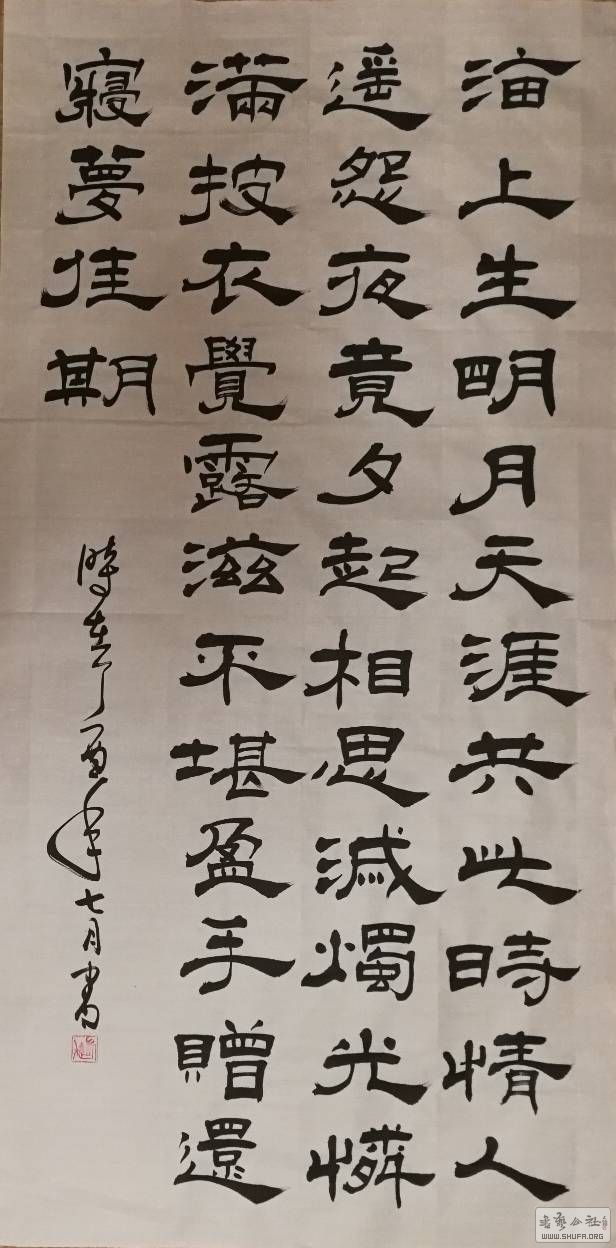 海上生明月天涯共此時情人
遥怨夜竟夕起相思滅燭光憐
滿披衣覺露滋不堪盈手贈還
寢夢佳期
時在丁酉年七月書
WWW.SHUFA.ORG